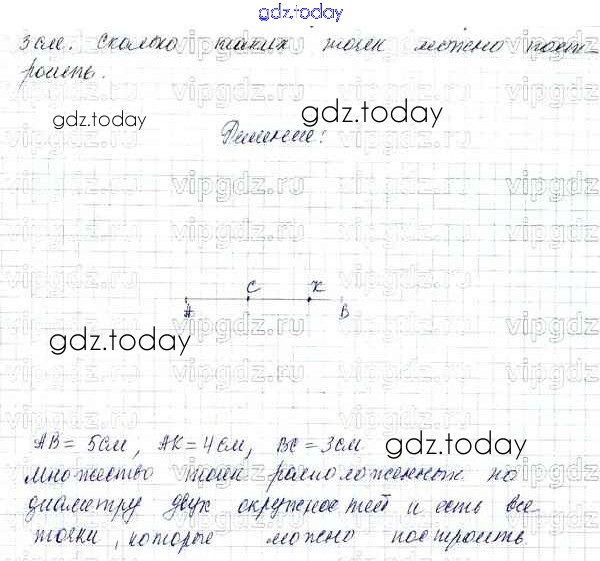 gdz.today
3 см. Сколько таких точек можно пост-
роить.
gdz.today
gdz.today
Решение:
vipgdz.ru
A C K B
gdz.today
AB = 5 см, AK = 4 см, BC = 3 см
gdz.today
множество точек расположенных по
диаметру двух окружностей и есть все
точки, которые можно построить